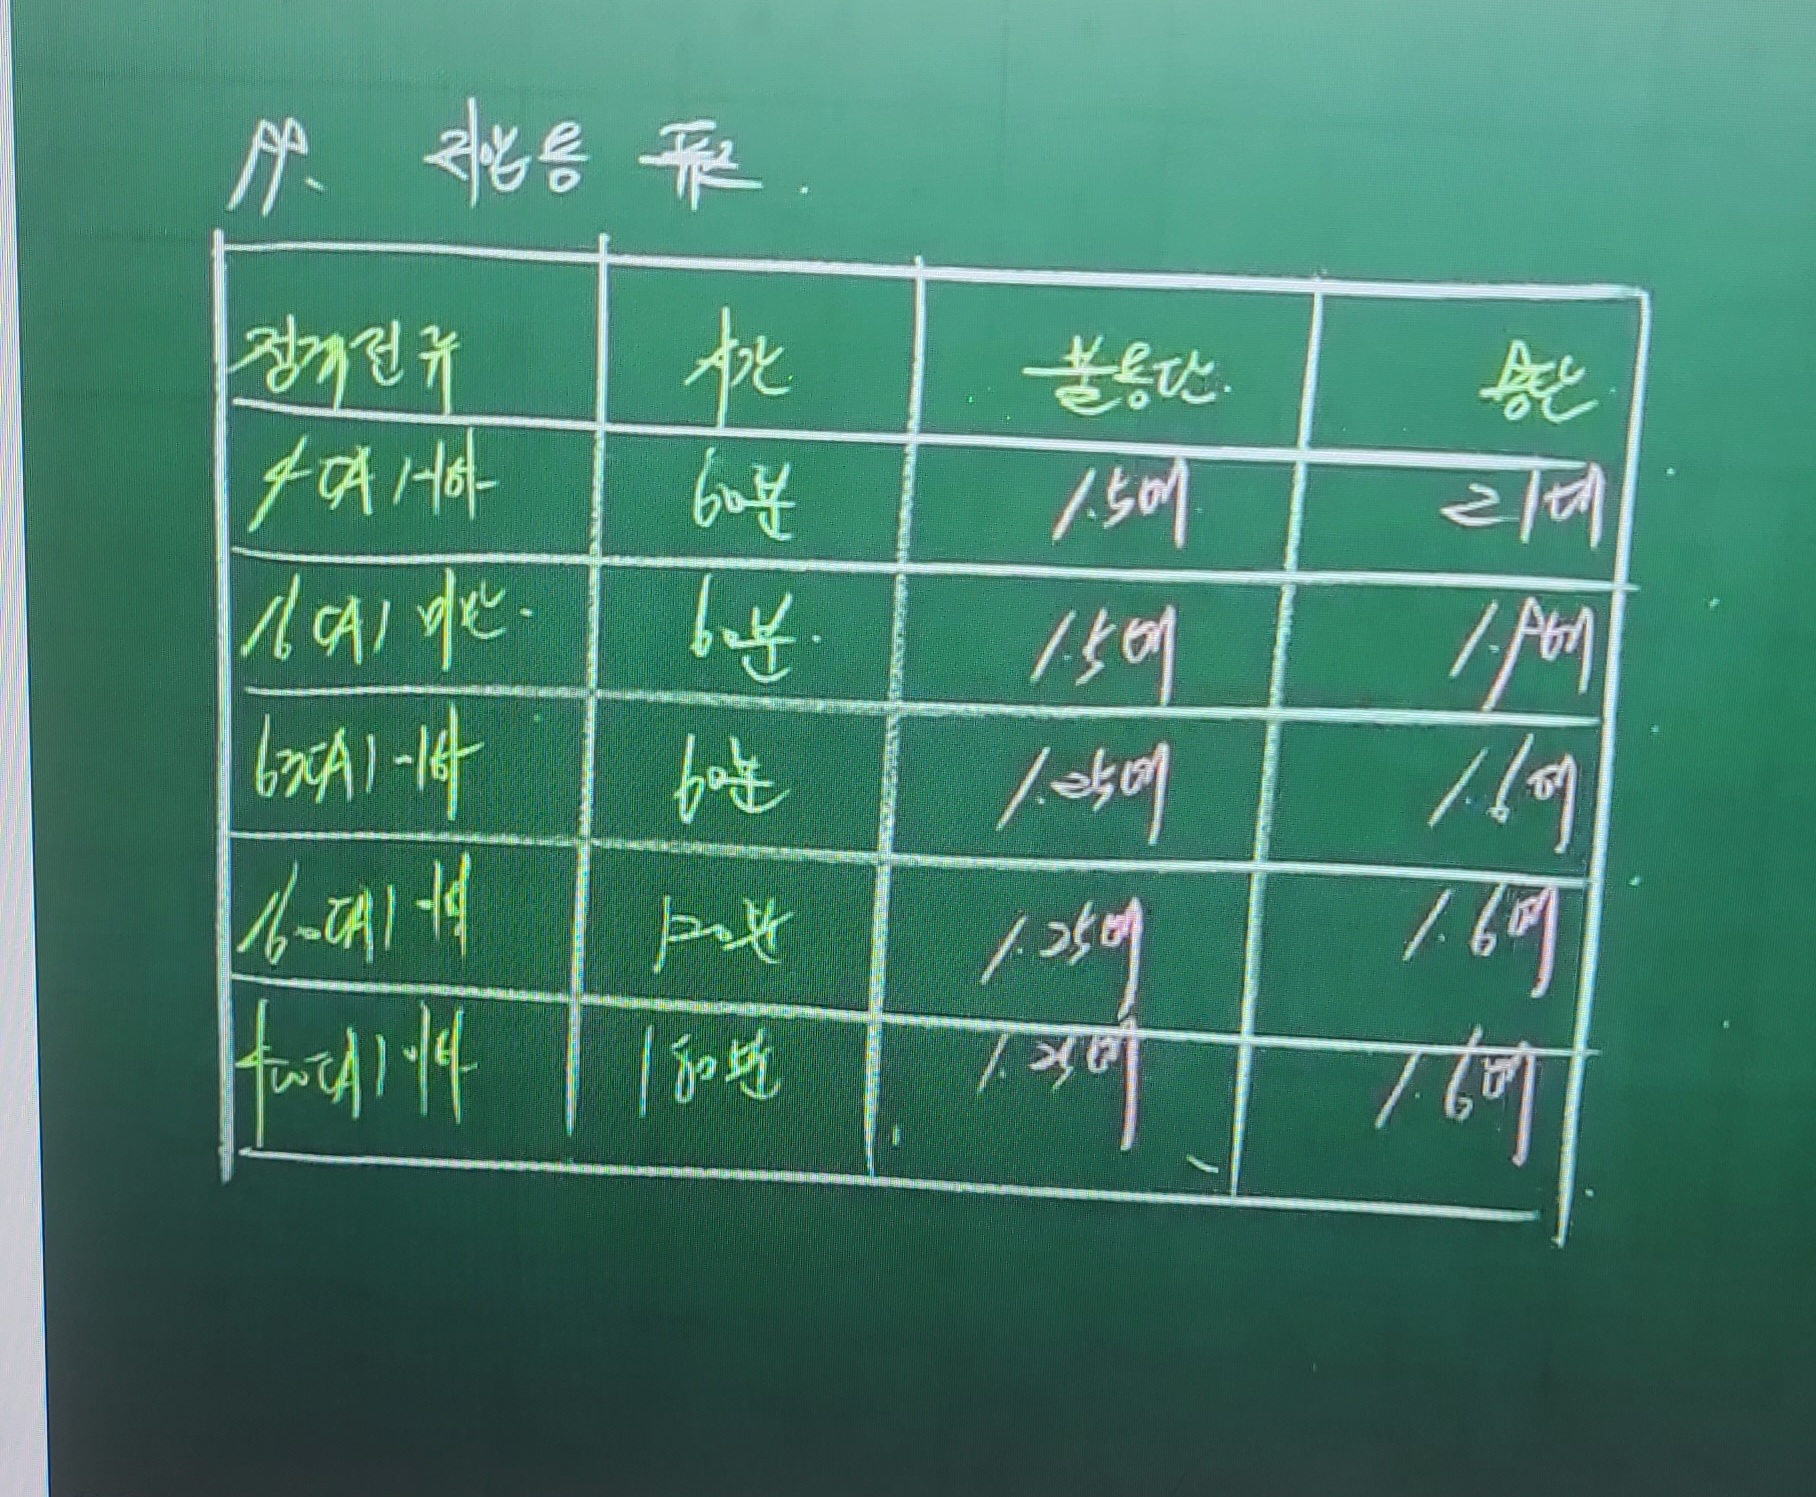 저압용 퓨즈.
정격전류 시간 불용단 용단
4[A] 이하 60분 1.5배 2.1배
16[A] 미만 60분 1.5배 1.9배
63[A] 이하 60분 1.25배 1.6배
160[A] 이하 120분 1.25배 1.6배
400[A] 이하 180분 1.25배 1.6배